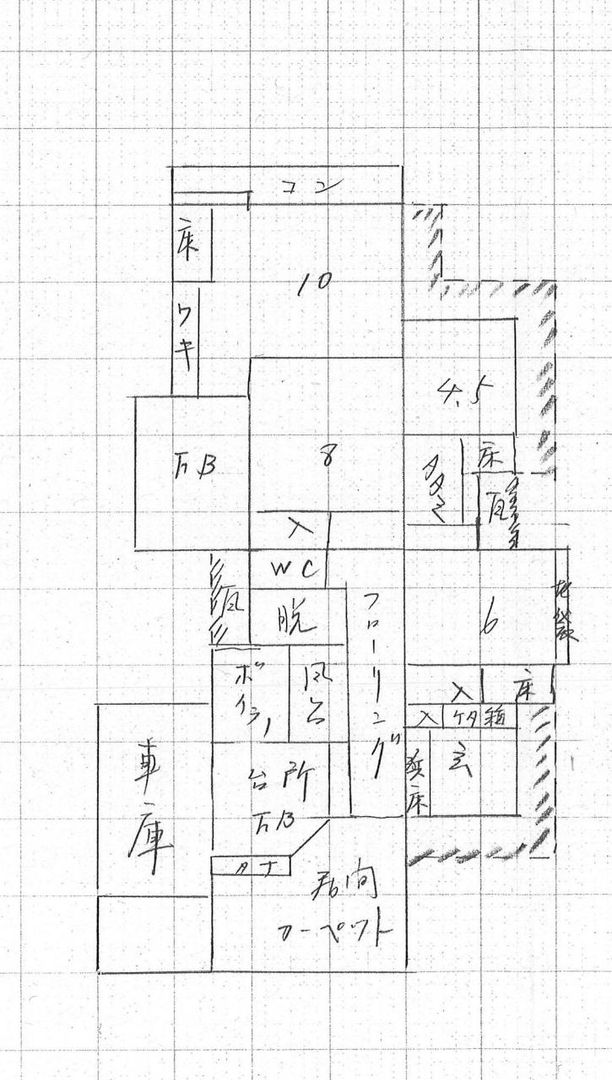 コン
床
10
ワキ
4.5
8
下B
床
タタミ
入
WC
風
フローリング
脱
6
地袋
ボイラー
風ロ
入
床
入
ゲタ箱
玄
車庫
台所
下B
タナ
居間
カーペット